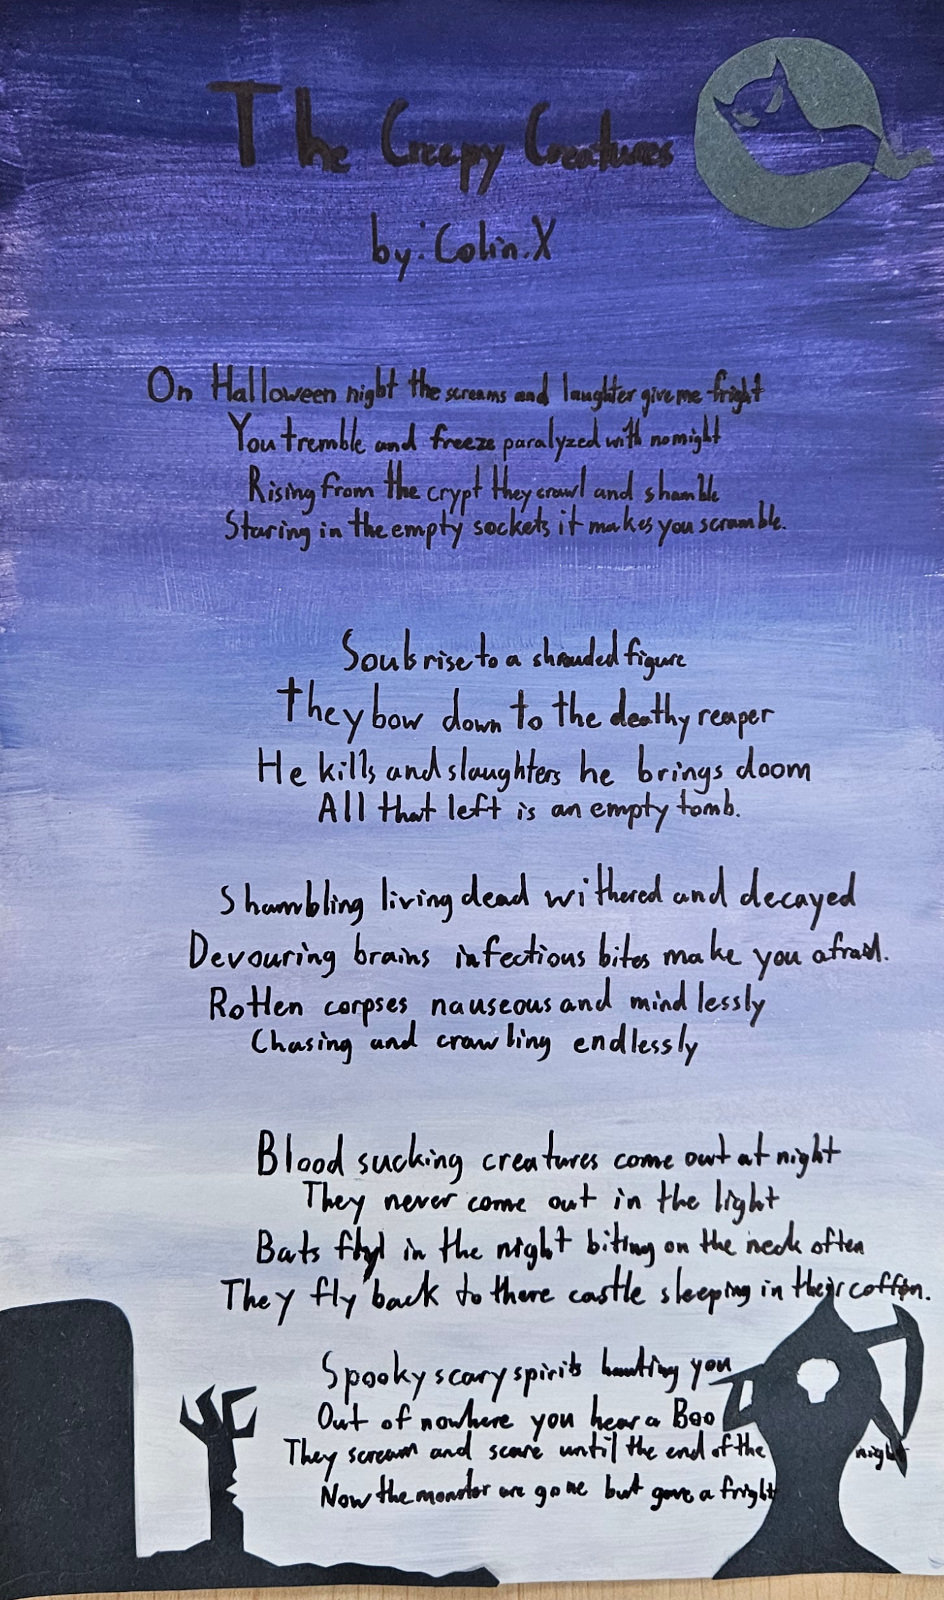 The Creepy Creatures
by: Colin.X
On Halloween night the screams and laughter give me fright
You tremble and freeze paralyzed with no might
Rising from the crypt they crawl and shamble
Staring in the empty sockets it makes you scramble.
Souls rise to a shrouded figure
They bow down to the deathy reaper
He kills and slaughters he brings doom
All that left is an empty tomb.
Shambling living dead withered and decayed
Devouring brains infectious bites make you afraid.
Rotten corpses nauseous and mindlessly
Chasing and crawling endlessly
Blood sucking creatures come out at night
They never come out in the light
Bats fly in the night biting on the neck often
They fly back to there castle sleeping in their coffin.
Spooky scary spirits haunting you
Out of nowhere you hear a Boo
They scream and scare until the end of the night
Now the monster are gone but gave a fright